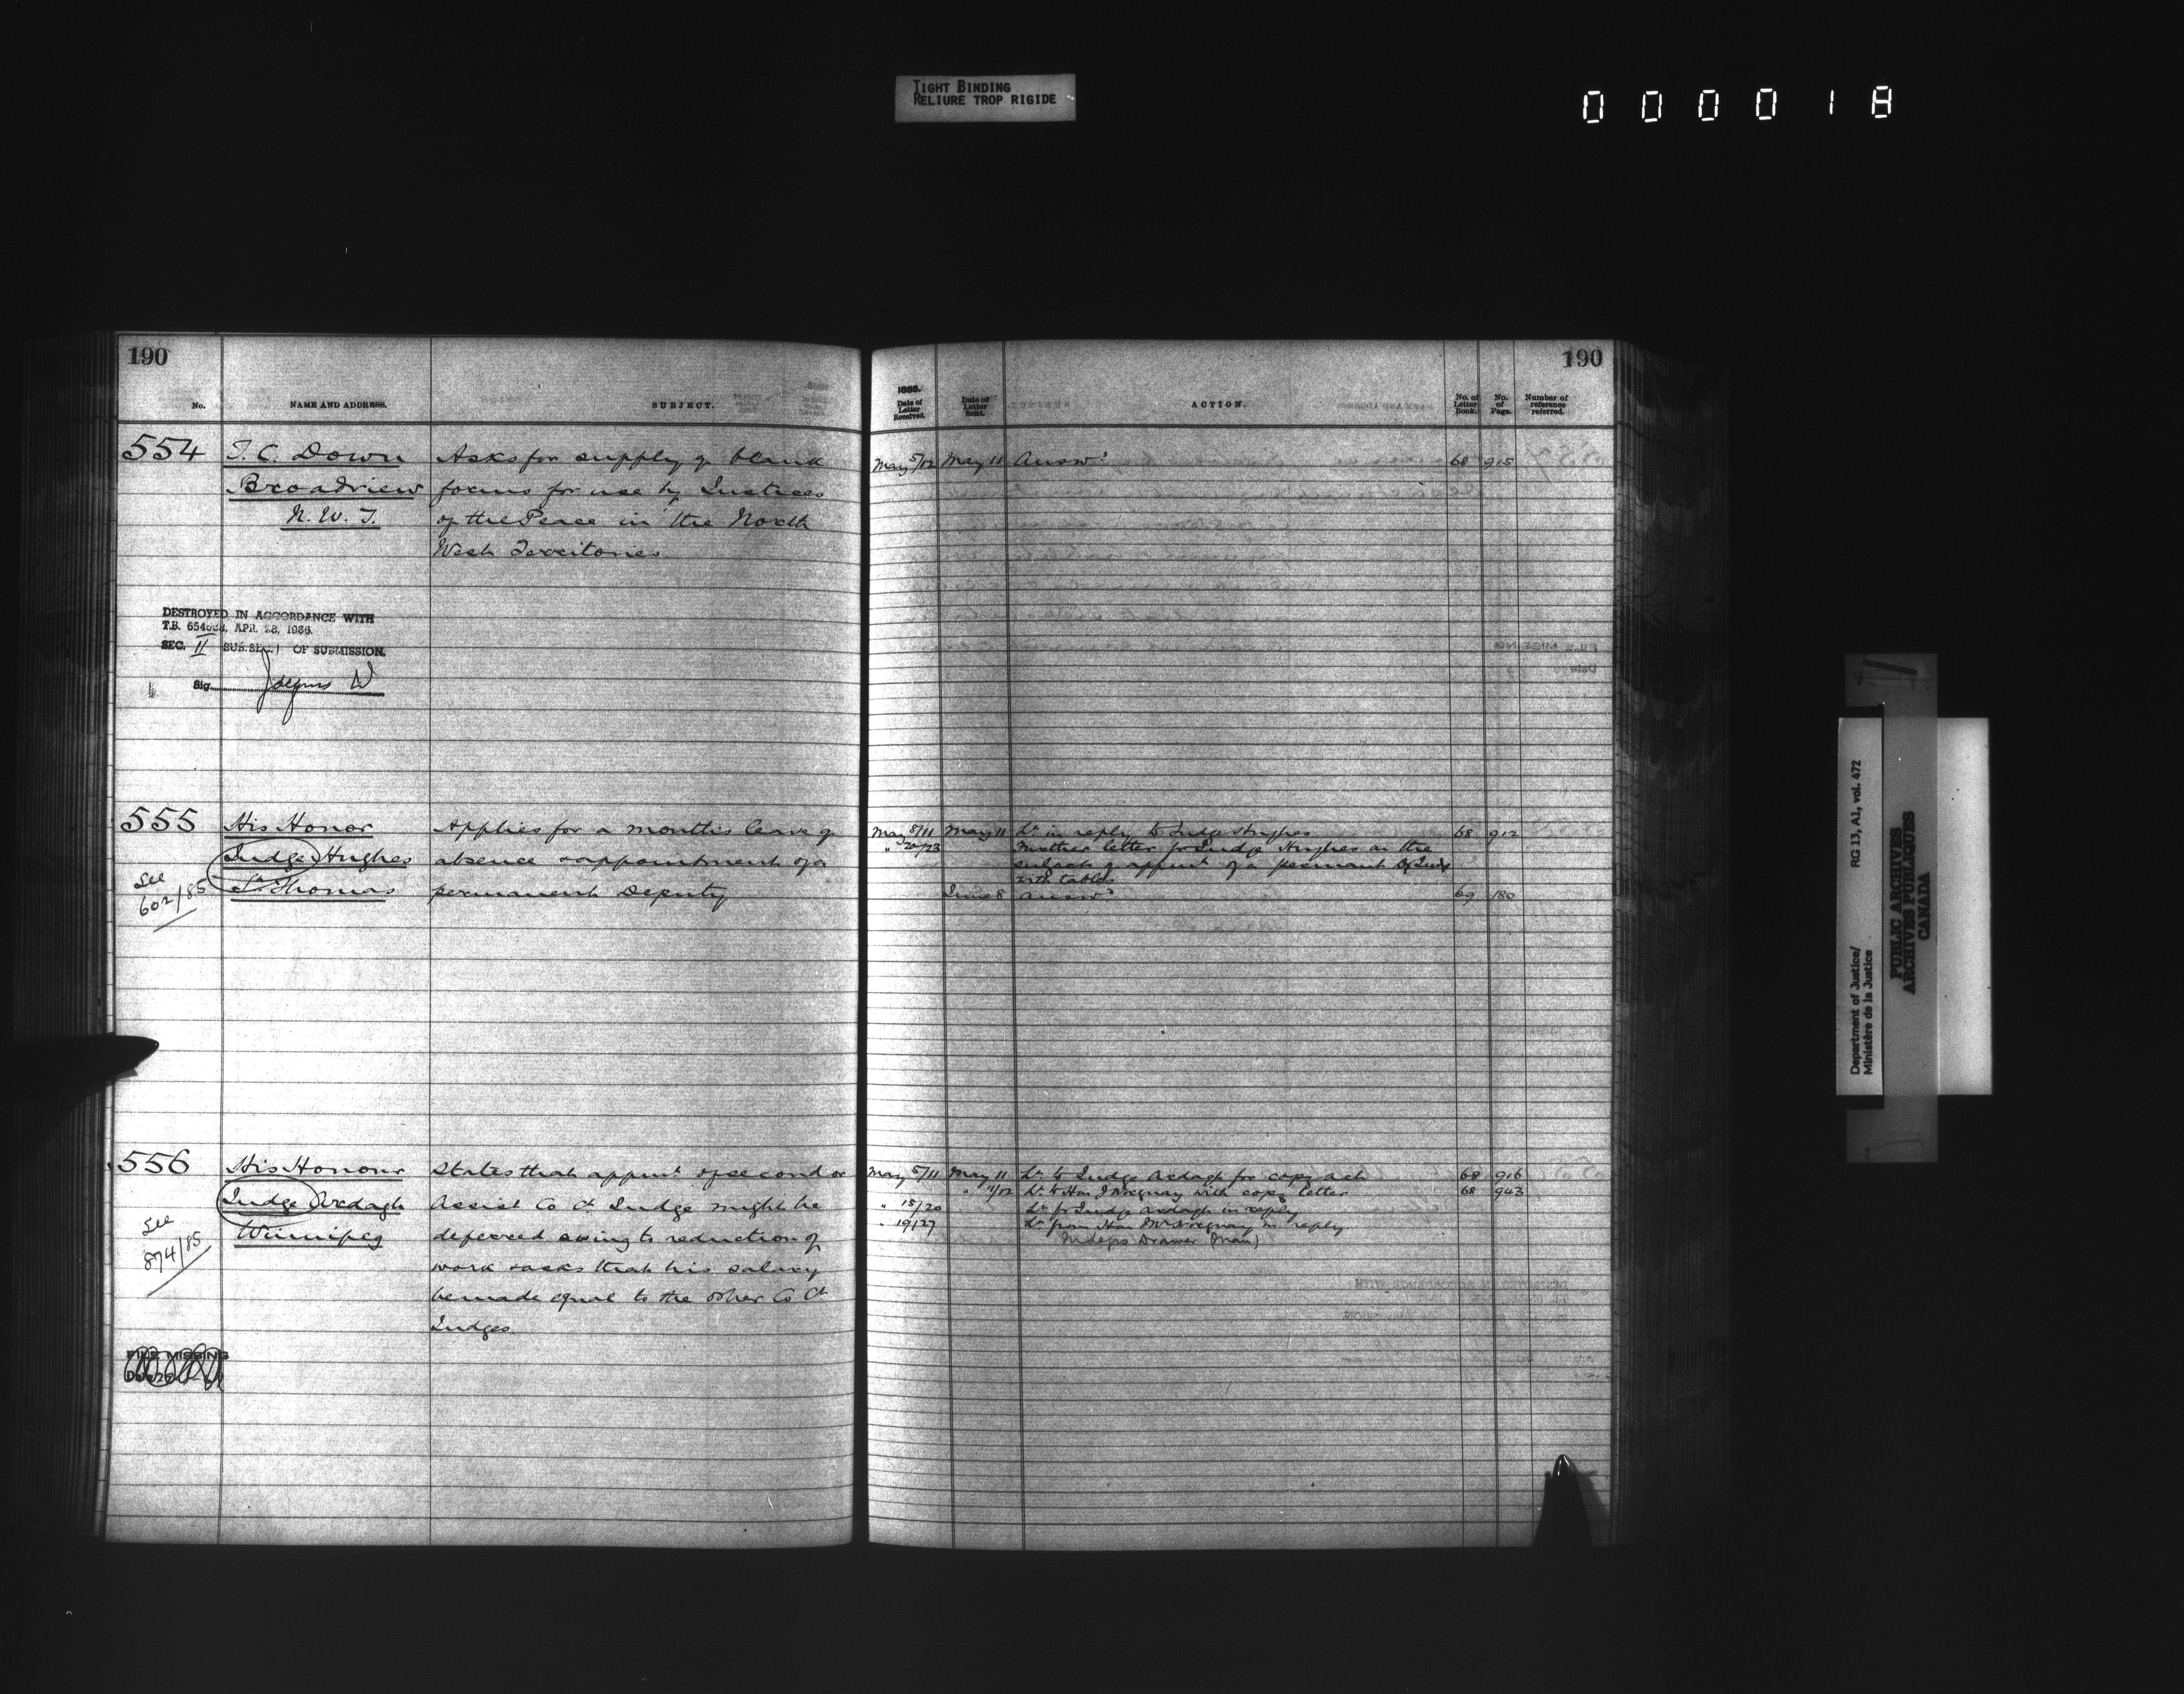 TIGHT BINDING
RELIURE TROP RIGIDE
000018
190
No.
NAME AND ADDRESS.
SUBJECT.
554
T. C. Down
Broadview
N. W. T.
Asks for supply of blank
forms for use by Justices
of the Peace in the North
West Territories
DESTROYED IN ACCORDANCE WITH
T.B. APR. 28, 1936.
SEC. II SUB.SEC. 1 OF SUBMISSION.
Sig.
555
His Honor
Judge Hughes
St. Thomas
See
602/85
Applies for a months leave of
absence & appointment of a
permanent Deputy
556
His Honour
Judge Ardagh
Winnipeg
See
874/85
States that appmt of second or
Assist Co Ct Judge might be
deferred owing to reduction of
work & asks that his salary
be made equal to the other Co Ct
Judges
FILE MISSING
190
1885.
Date of Letter Received.
Date of Letter Sent.
ACTION.
No. of Letter Book.
No. of Page.
Number of reference referred.
May 5/12 May 11 Answd 68 915
May 8/11 May 11 Lr in reply to Judge Hughes 68 912
" 20/23 Another letter fr Judge Hughes on the
subject of appmt of a permant Dy Judge
with tables
June 8 Answd 69 180
May 5/11 May 11 Lr to Judge Ardagh for copy act 68 916
" 11/12 Lr to Hon J Norquay with copy letter 68 943
" 18/20 Lr fr Judge Ardagh in reply
" 19/27 Lr from Hon Mr Norquay in reply
Judges Drawer (Man)
Department of Justice/
Ministère de la Justice
RG 13, A1, vol. 472
PUBLIC ARCHIVES
ARCHIVES PUBLIQUES
CANADA